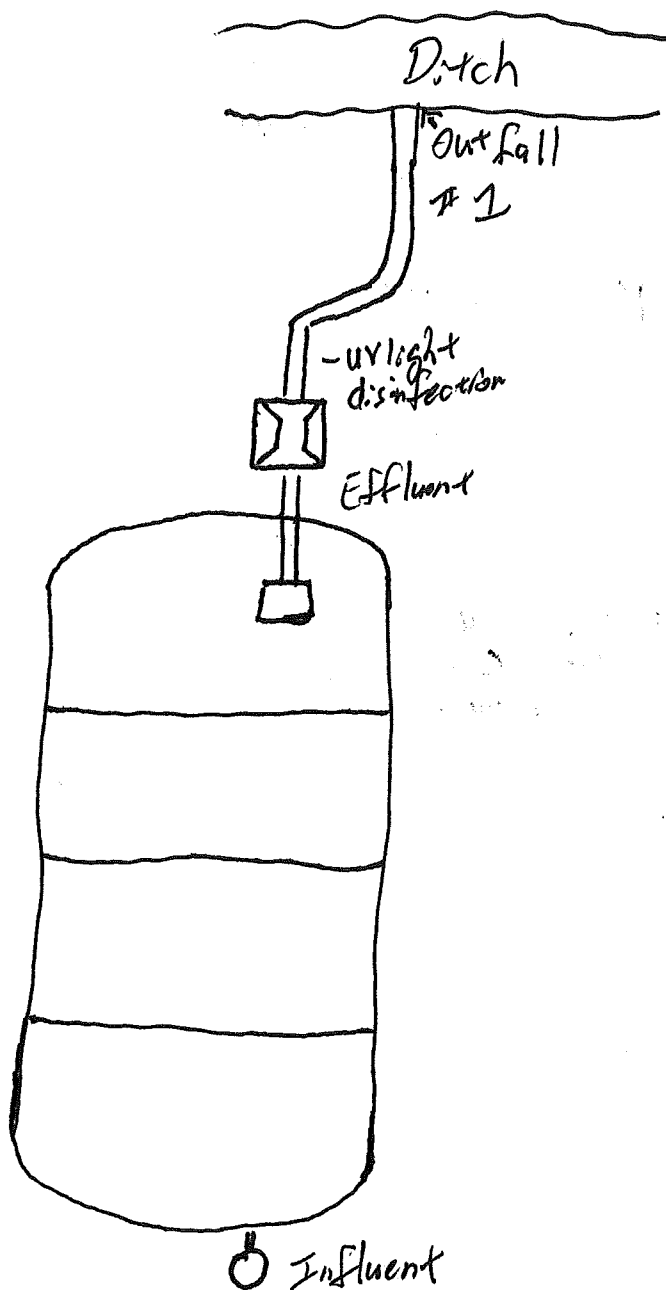 Ditch
Outfall
# 1
- UV light
disinfection
Effluent
Influent